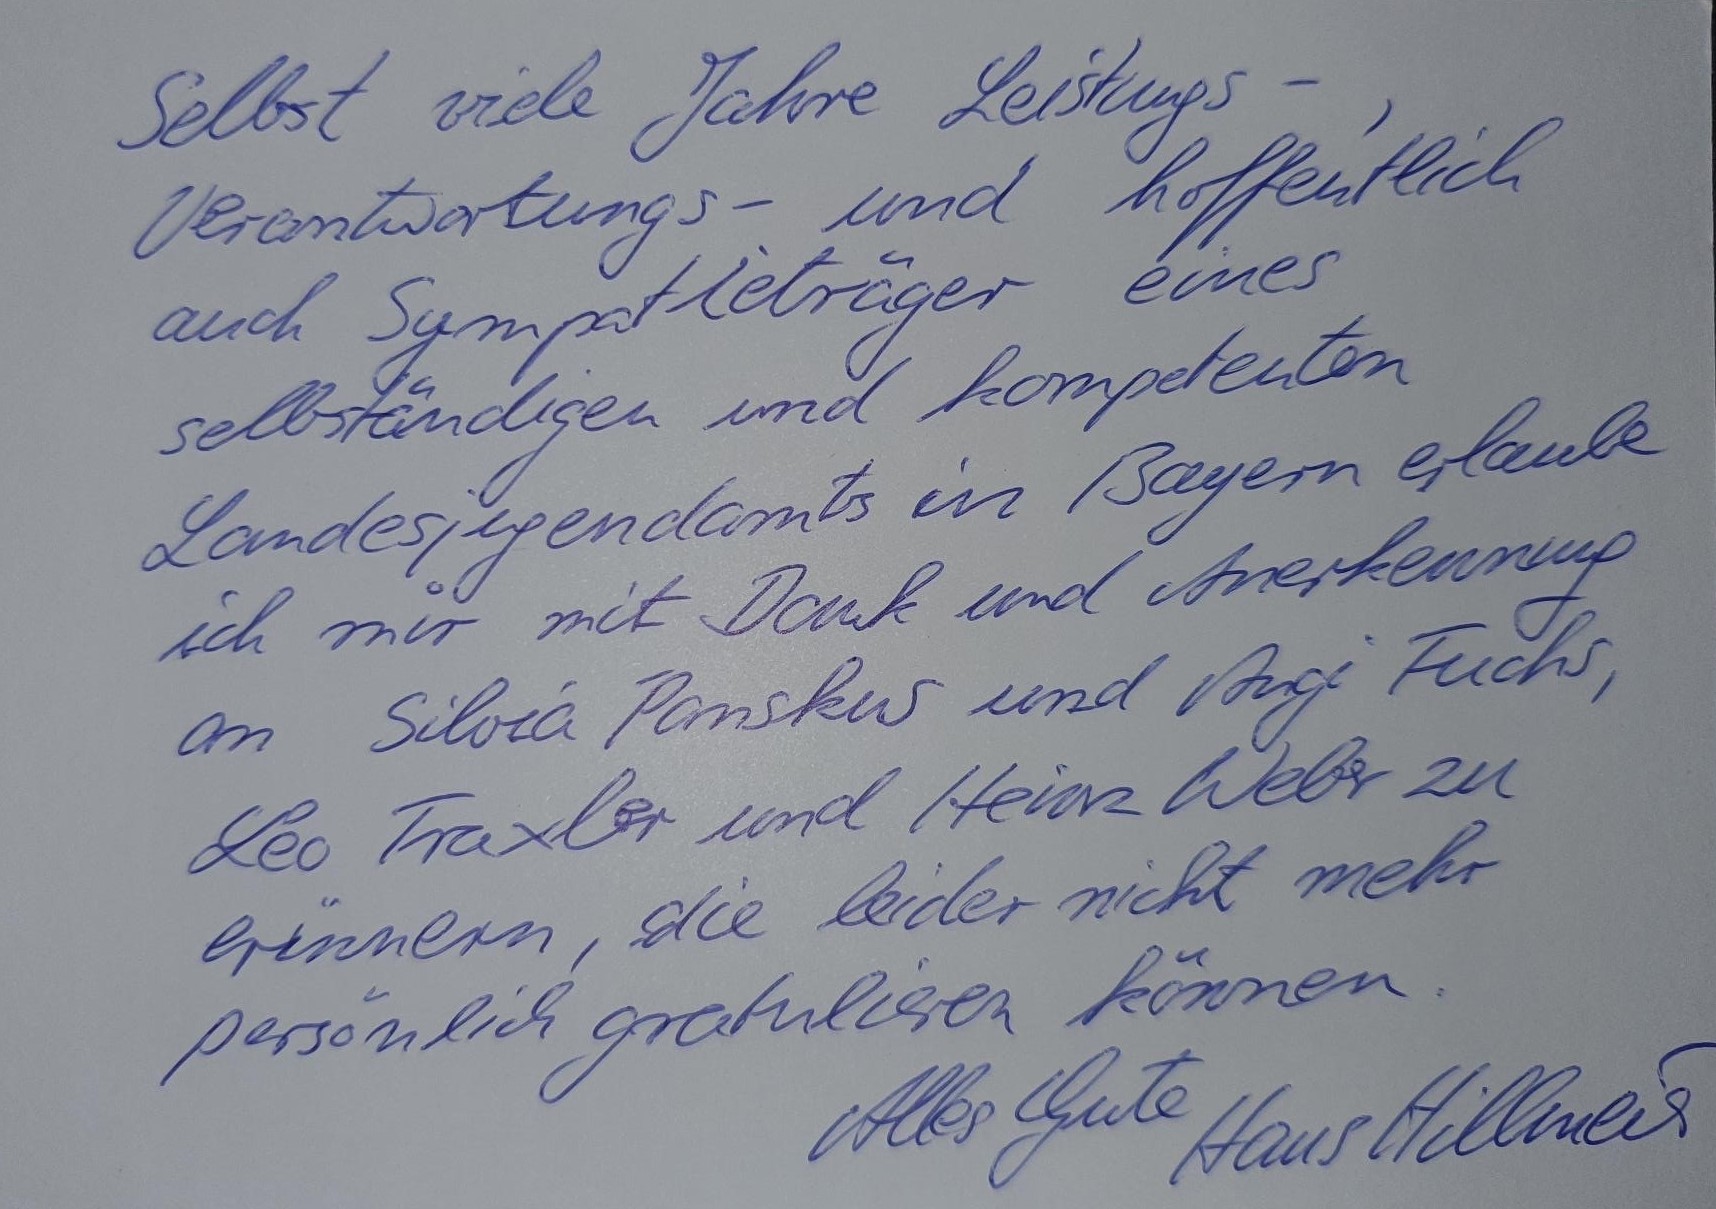 Selbst viele Jahre Leistungs-,
Verantwortungs- und hoffentlich
auch Sympathieträger eines
selbständigen und kompetenten
Landesjugendamts in Bayern erlaube
ich mir mit Dank und Anerkennung
an Silvia Panskus und Angi Fuchs,
Leo Traxler und Heinz Weber zu
erinnern, die leider nicht mehr
persönlich gratulieren können.
Alles Gute Hans Hillmeier